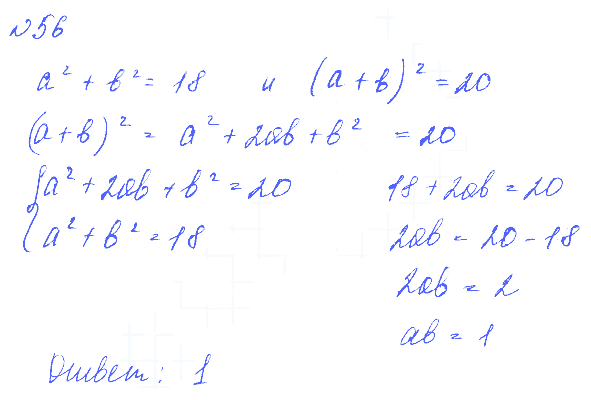 №56
a² + b² = 18 и (a + b)² = 20
(a + b)² = a² + 2ab + b² = 20
{a² + 2ab + b² = 20
{a² + b² = 18
18 + 2ab = 20
2ab = 20 - 18
2ab = 2
ab = 1
Ответ: 1